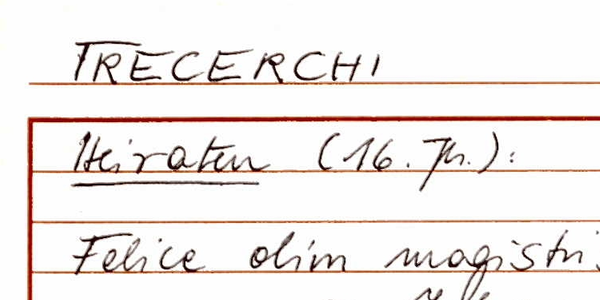 TRECERCHI
Heiraten (16. Jh.):
Felice olim magistri